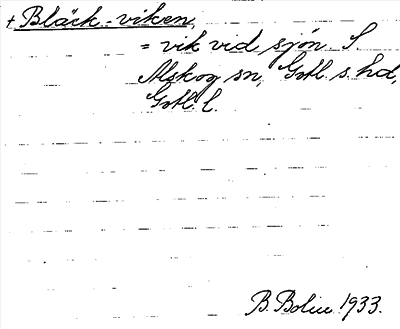 + Bläck-viken
= vik vid sjön. S.
Alskog sn, Gotl. s. hd,
Gotl. l.
B. Bolin 1933.